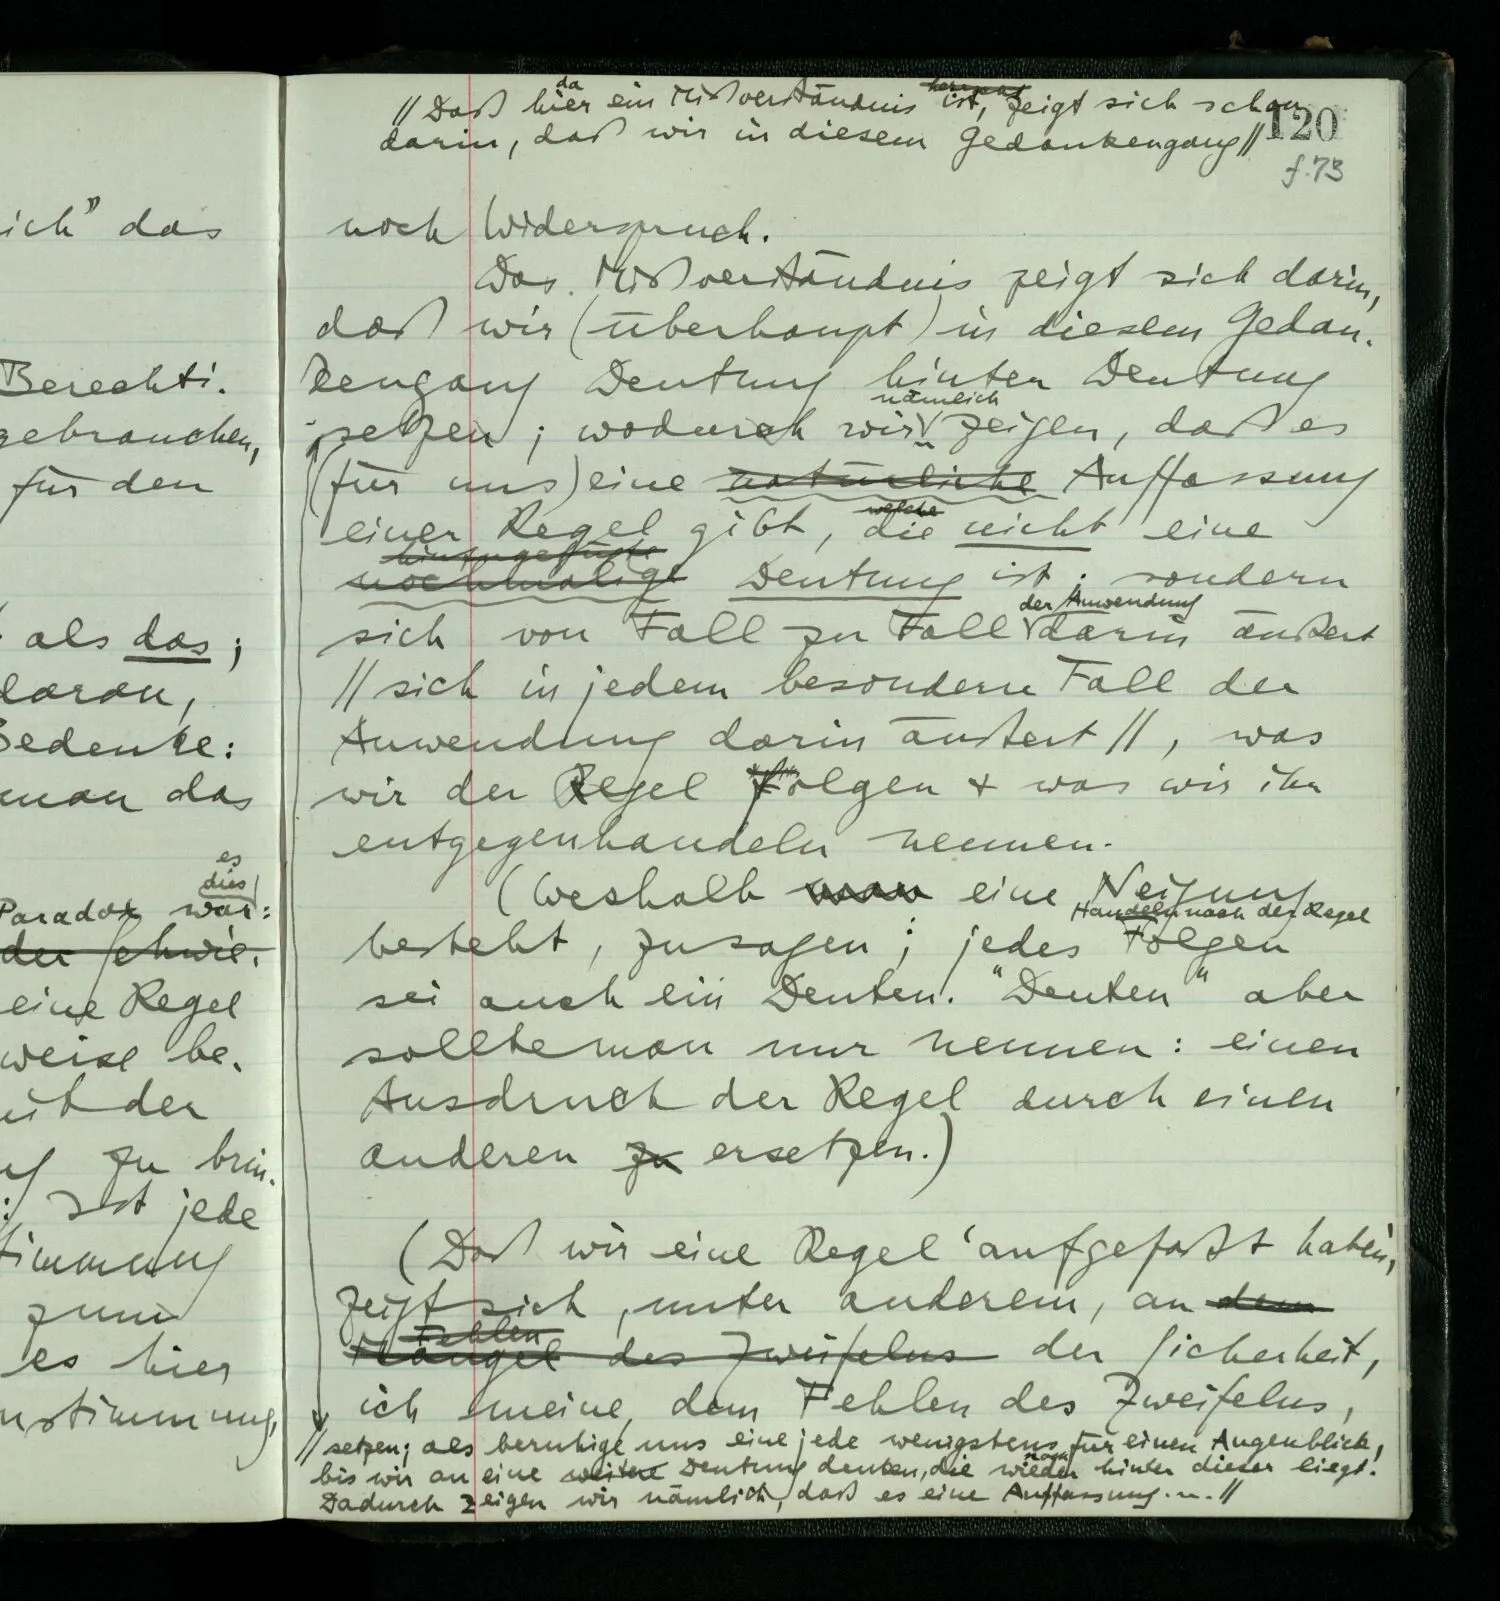 ich" das
Berechti.
gebrauchen,
für den
als das ;
daran,
Bedenke:
man das
es
dies
Paradox war:
der Schwie.
eine Regel
weise be.
mit der
zu brin.
: Ist jede
timmung
zum
es hier
nstimmung,
da herrscht
// Daß hier ein Mißverständnis ist, zeigt sich schon
darin, daß wir in diesem Gedankengang //
120
f. 73
noch Widerspruch.
Das Mißverständnis zeigt sich darin,
daß wir (überhaupt) in diesem Gedan-
kengang Deutung hinter Deutung
nämlich
setzen ; wodurch wir zeigen, daß es
(für uns) eine natürliche Auffassung
welche
einer Regel gibt, die nicht eine
hinzugefügte
nochmalige Deutung ist ; sondern
der Anwendung
sich von Fall zu Fall darin äußert
// sich in jedem besondern Fall der
Anwendung darin äußert //, was
wir der Regel folgen + was wir ihr
entgegenhandeln nennen.
(Weshalb man eine Neigung
Handeln nach der Regel
besteht, zu sagen ; jedes Folgen
sei auch ein Deuten. "Deuten" aber
sollte man nur nennen : einen
Ausdruck der Regel durch einen
anderen zu ersetzen.)
(Daß wir eine Regel 'aufgefaßt haben',
zeigt sich, unter anderem, an dem
Fehlen
Mangel des Zweifelns der Sicherheit,
ich meine, dem Fehlen des Zweifelns,
// setzen; als beruhige uns eine jede wenigstens für einen Augenblick,
noch
bis wir an eine weitere Deutung denken, die wieder hinter dieser liegt.
Dadurch zeigen wir nämlich, daß es eine Auffassung . . . //